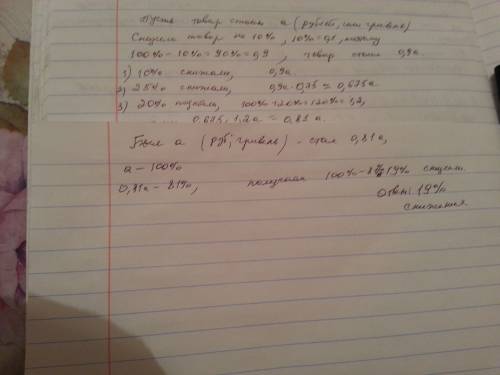 Пусть товар стоит а (рублей, или гривень)
Снизили товар на 10%, 10% = 0,1, поэтому
100% - 10% = 90% = 0,9, товар стал 0,9а.
1) 10% снижали, 0,9а.
2) 25% снижали, 0,9а · 0,75 = 0,675а
3) 20% 100% + 20% = 120% = 1,2,
0,675 · 1,2а = 0,81а.
Был а (руб, гривень) - стал 0,81а,
а - 100%
0,81а - 81%, получаем 100% - 81% = 19%
Ответ: 19%
снижения.